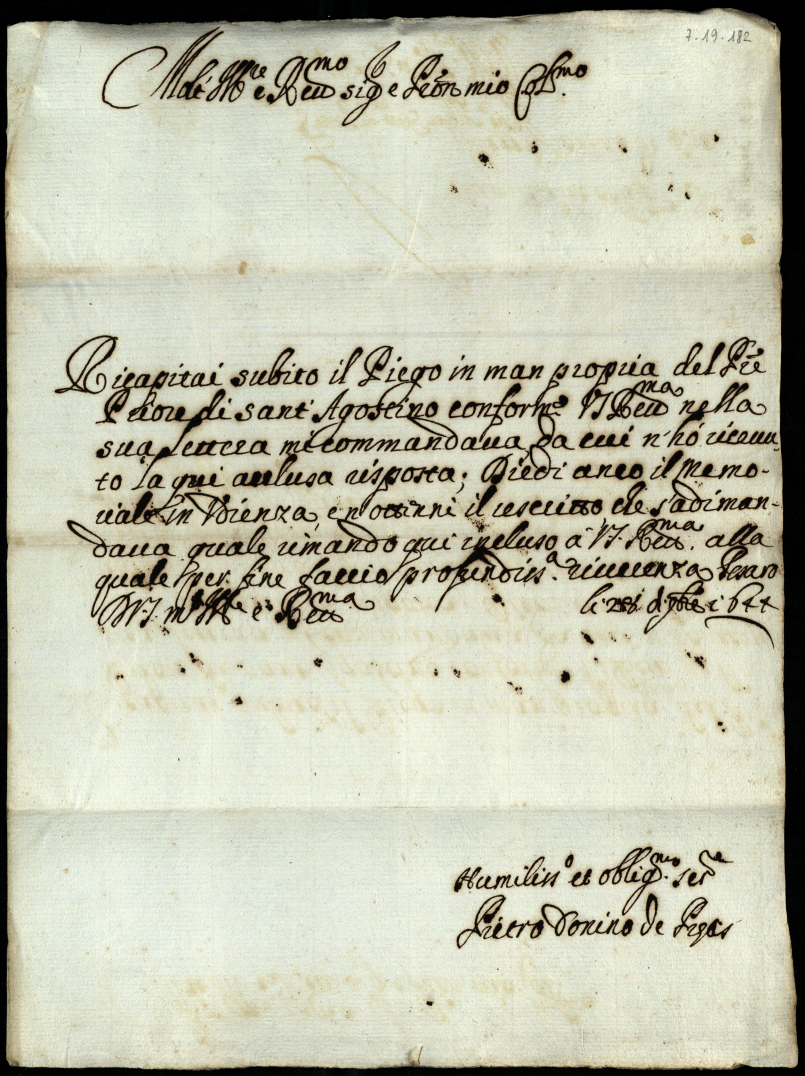 7-19-182
Molt' Ill.re e Reu.mo Sig.r e Pron mio Col.mo
Ricapitai subito il Piego in man propria del Pre
Priore di sant' Agostino conforme V.S. Reu.ma nella
sua lettera mi commandaua, da cui n'hó riceuu-
to la qui acclusa risposta; Diedi anco il memo-
riale in Vdienza, e n'ottenni il rescritto che s'adiman-
daua quale rimando qui incluso à V.S. Reu.ma. alla
quale per fine faccio profundiss.a riuerenza Pesaro
Di V.S. m. Ill.re e Reu.ma li 28 di 7bre 1644
Humiliss.o et oblig.mo ser.re
Pietro Donino de